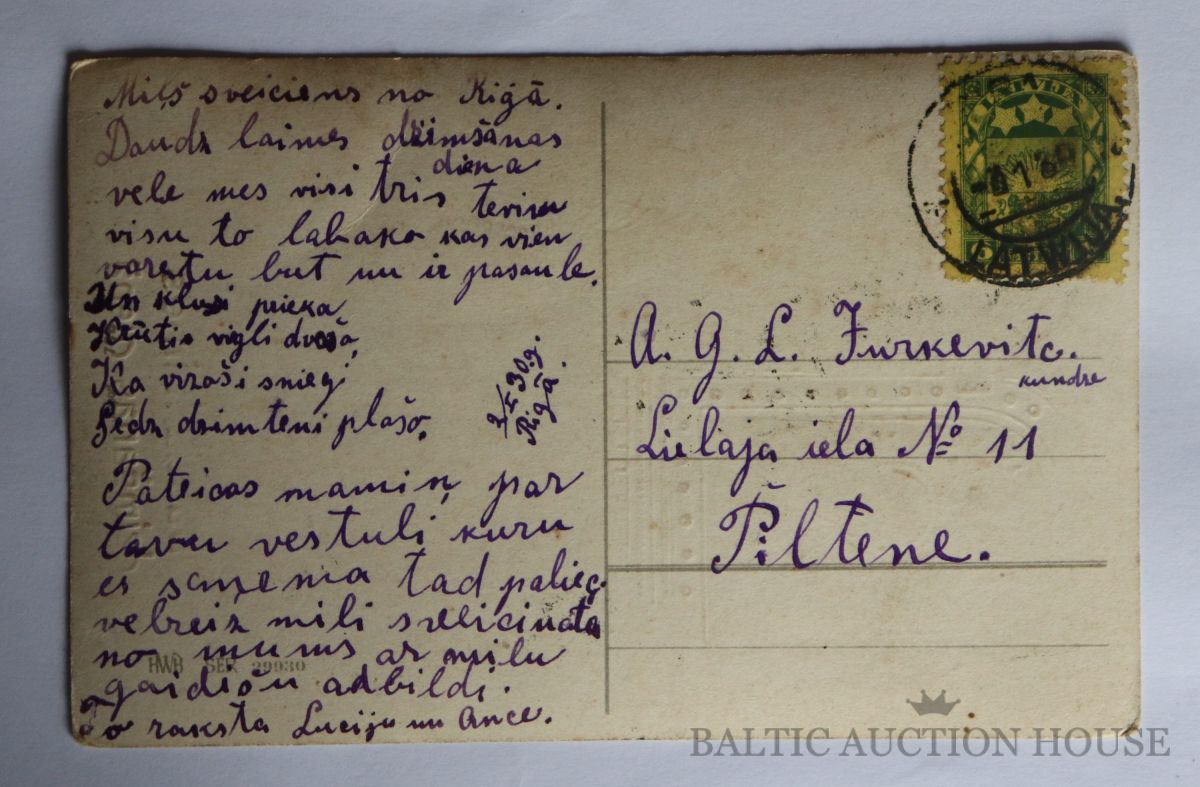 Miļš sveiciens no Rigā.
Daudz laimes dzimšanas
diena
vele mes visi tris tevim
visu to labako kas vien
varetu but nu ir pasaule.
Un klusi prieka
Krūtis viegli dvašā,
Ka virši snieg
Sedz dzimteni plašo.
3/I 30.g.
Rigā.
Pateicos mamiņ par
tavu vestuli kuru
es saņema tad palieg
velreiz mili sveicinata
no mums ar milu
gaidišu adbildi.
To raksta Lucija un Ance.
HWB SER 29930
LATVIJA
LATWIJA.
A. G. L. Jurkevitc.
kundze
Lielaja iela № 11
Piltene.
BALTIC AUCTION HOUSE